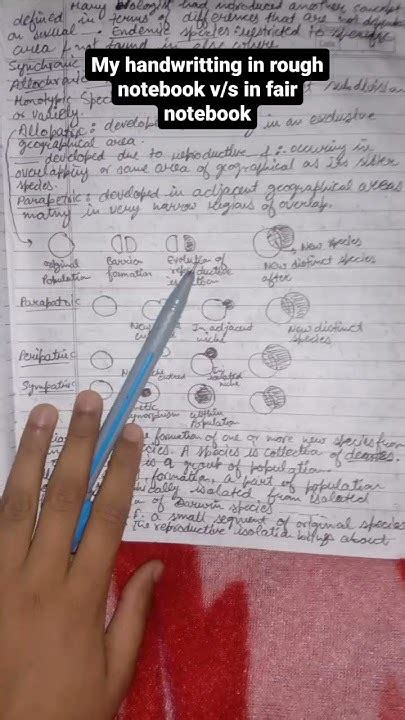 Many biologist had introduced another concept
defined in terms of differences that are not dependent
on sexual. Endemic species: restricted to specific
area & not found in else where
Synchronic
My handwritting in rough
notebook v/s in fair
notebook
Allochronic
Monotypic Speci
or variety.
Allopatric: developed in an exclusive
geographical area.
developed due to reproductive occuring in
overlapping or same area of geographical as its sister
species.
Parapatric: developed in adjacent geographical areas
mating in very narrow regions of overlap.
New species
original
Population
Barrior
formation
Evolution of
reproductive
isolation
New distinct species
after
Parapatric
New
In adjacent
niche
New distinct
species
Peripatric
entred
isolated
niche
Sympatric
within
Population
formation of one or more new species from
species. A species is collection of demes.
is a group of population.
formation, a part of population
isolated from isolated
n of Darwin species
a small segment of original species
The reproductive isolated brings about